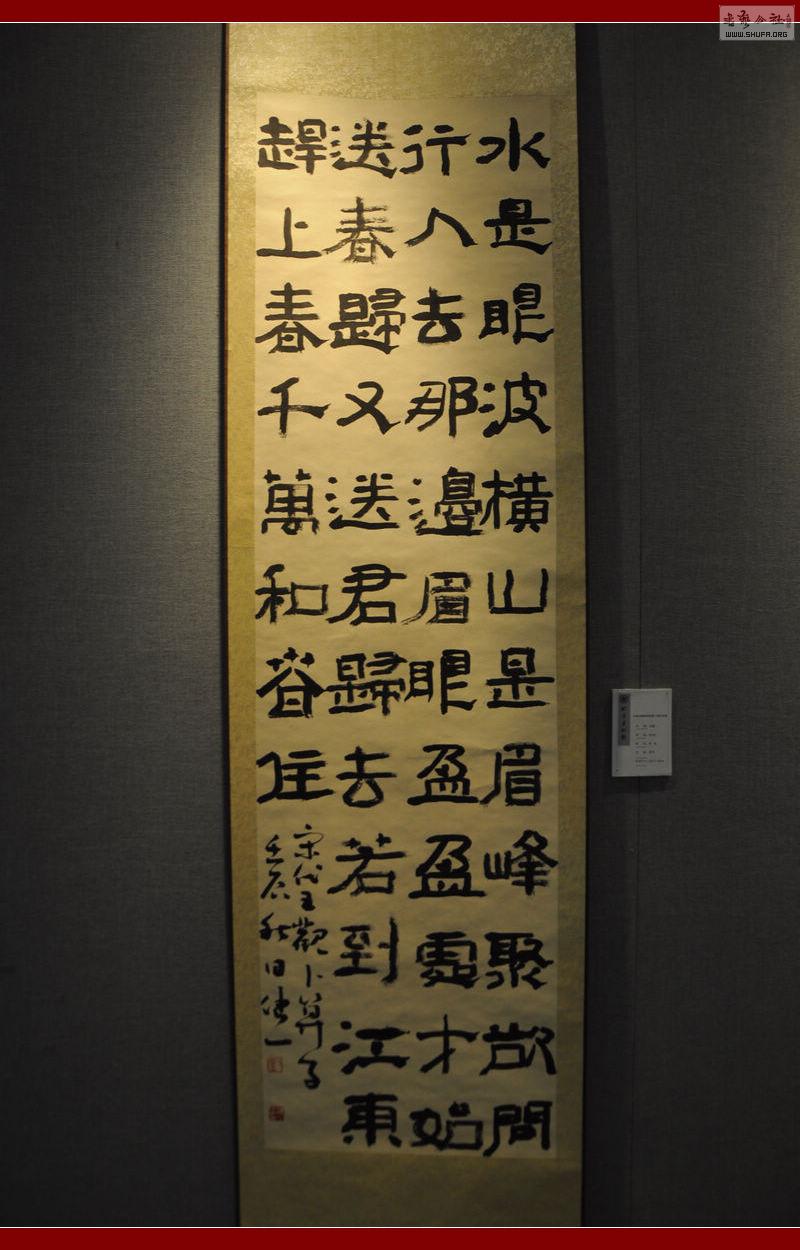 水是眼波橫山是眉峰聚欲問
行人去那邊眉眼盈盈處才始
送春歸又送君歸去若到江東
趕上春千萬和春住
宋代王觀卜算子
壬辰秋日
书艺公社
WWW.SHUFA.ORG